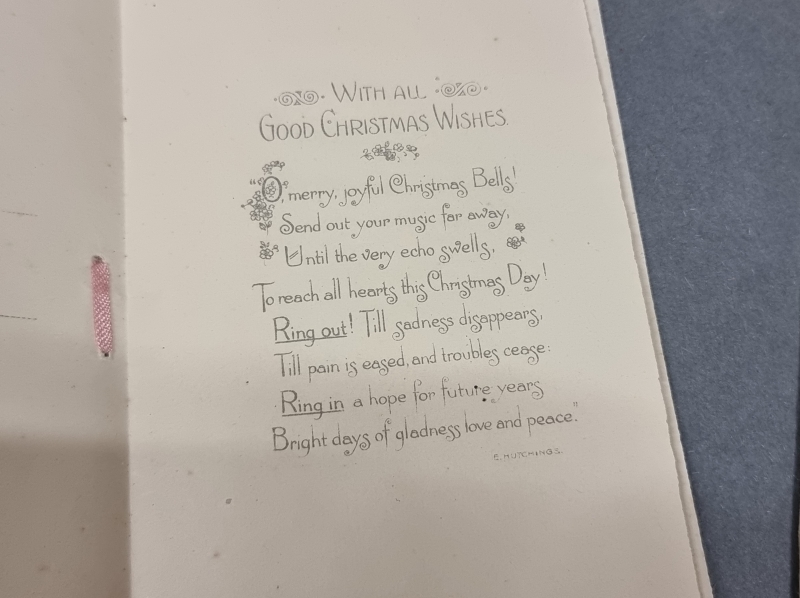 WITH ALL
GOOD CHRISTMAS WISHES.
"O, merry, joyful Christmas Bells!
Send out your music far away,
Until the very echo swells,
To reach all hearts this Christmas Day!
Ring out! Till sadness disappears,
Till pain is eased, and troubles cease:
Ring in a hope for future years
Bright days of gladness love and peace."
E. HUTCHINGS.